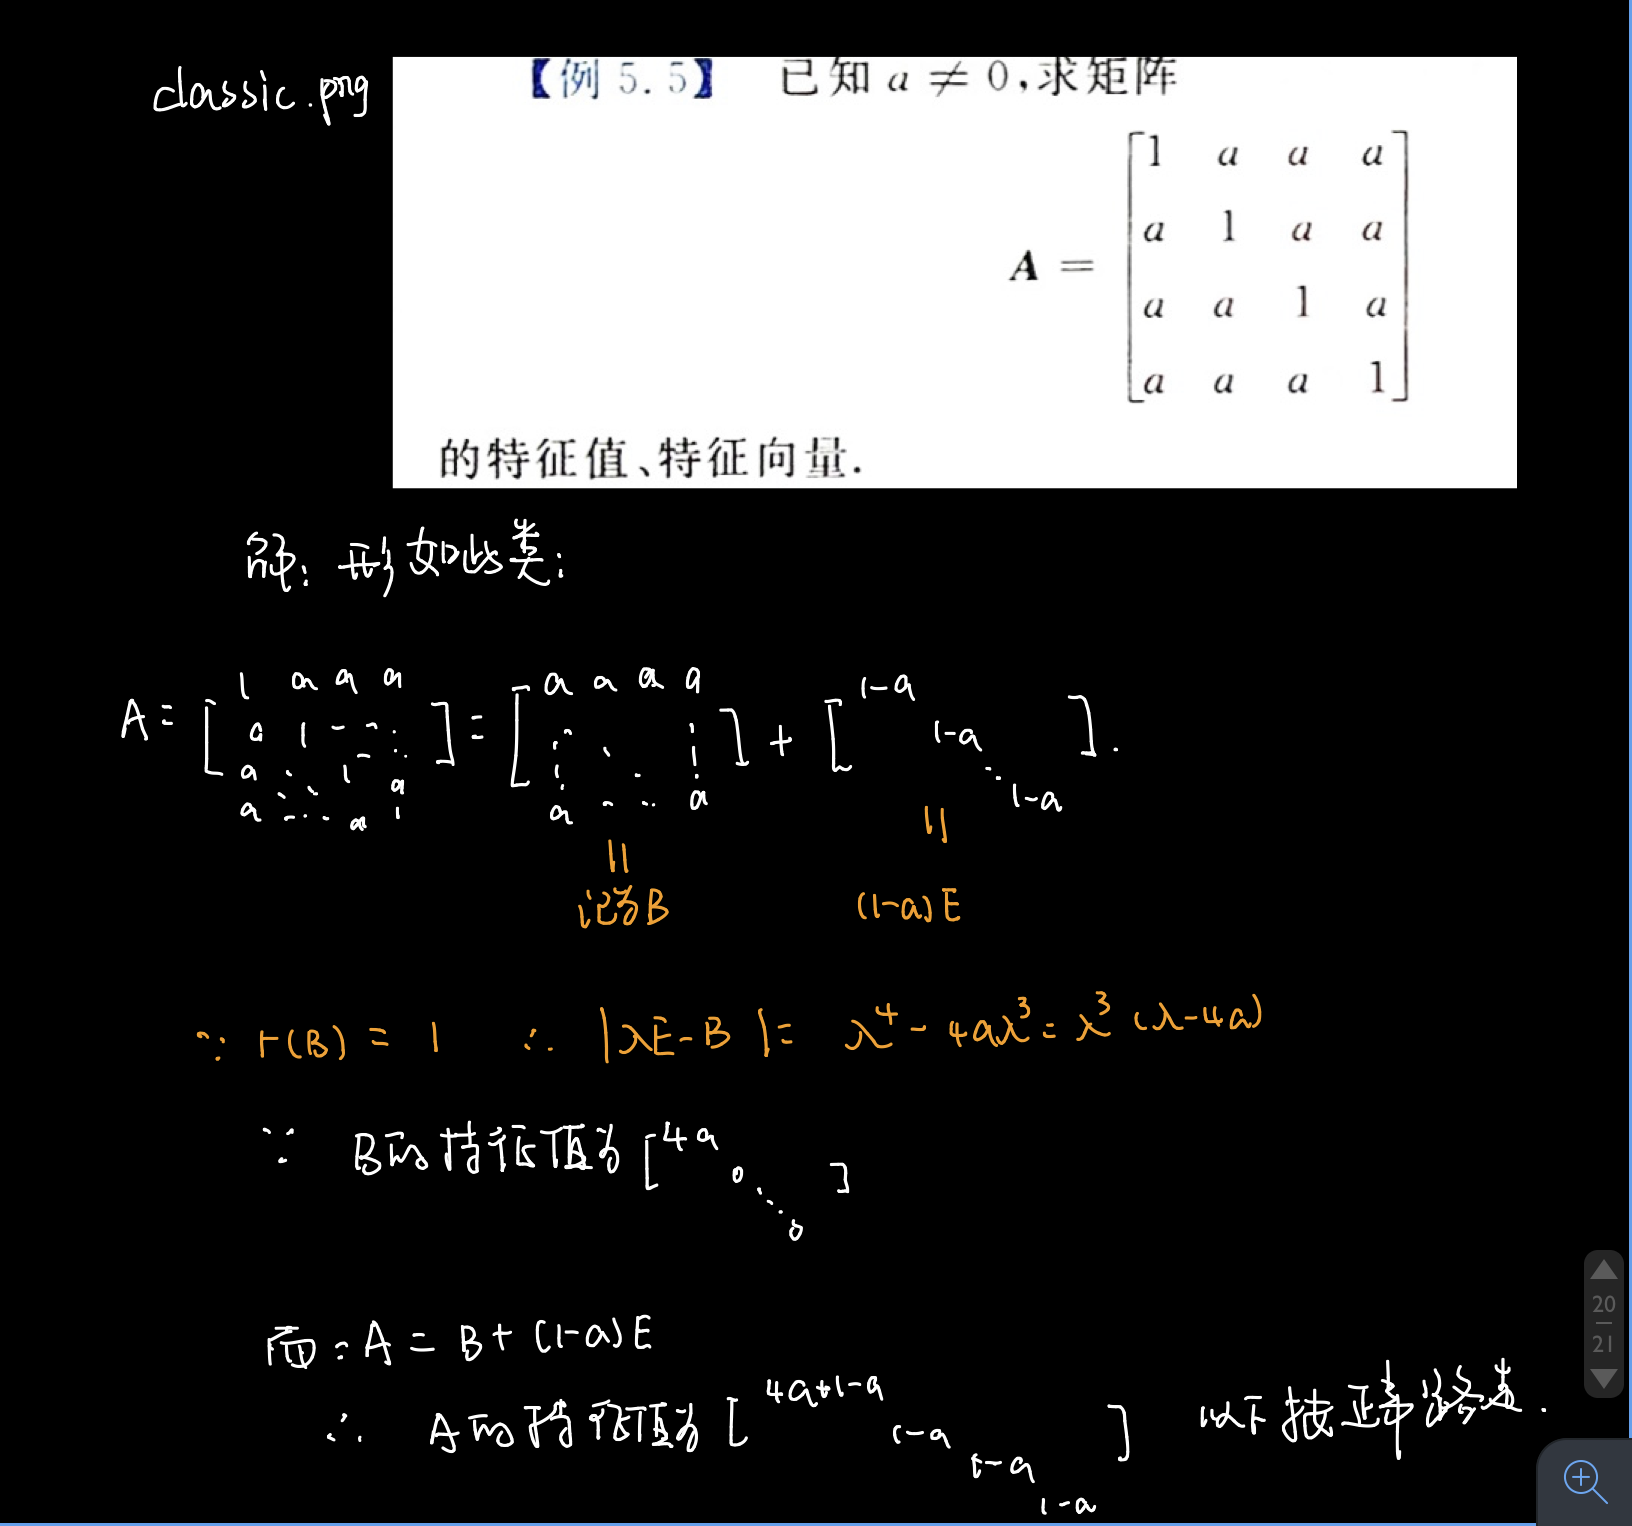 classic.png
【例 5.5】 已知 a ≠ 0,求矩阵
A = [1 a a a
a 1 a a
a a 1 a
a a a 1]
的特征值、特征向量.
解:形如此类:
A = [1 a a a
a 1
a 1 a
a a 1] = [a a a a
a a] + [1-a
1-a
1-a].
= =
记为B (1-a)E
∵ r(B) = 1 ∴ |λE-B| = λ⁴ - 4aλ³ = λ³(λ-4a)
∵ B的特征值为 [4a
0
0]
而:A = B + (1-a)E
∴ A的特征值为 [4a+1-a
1-a
1-a
1-a] 以下按正常
20
21